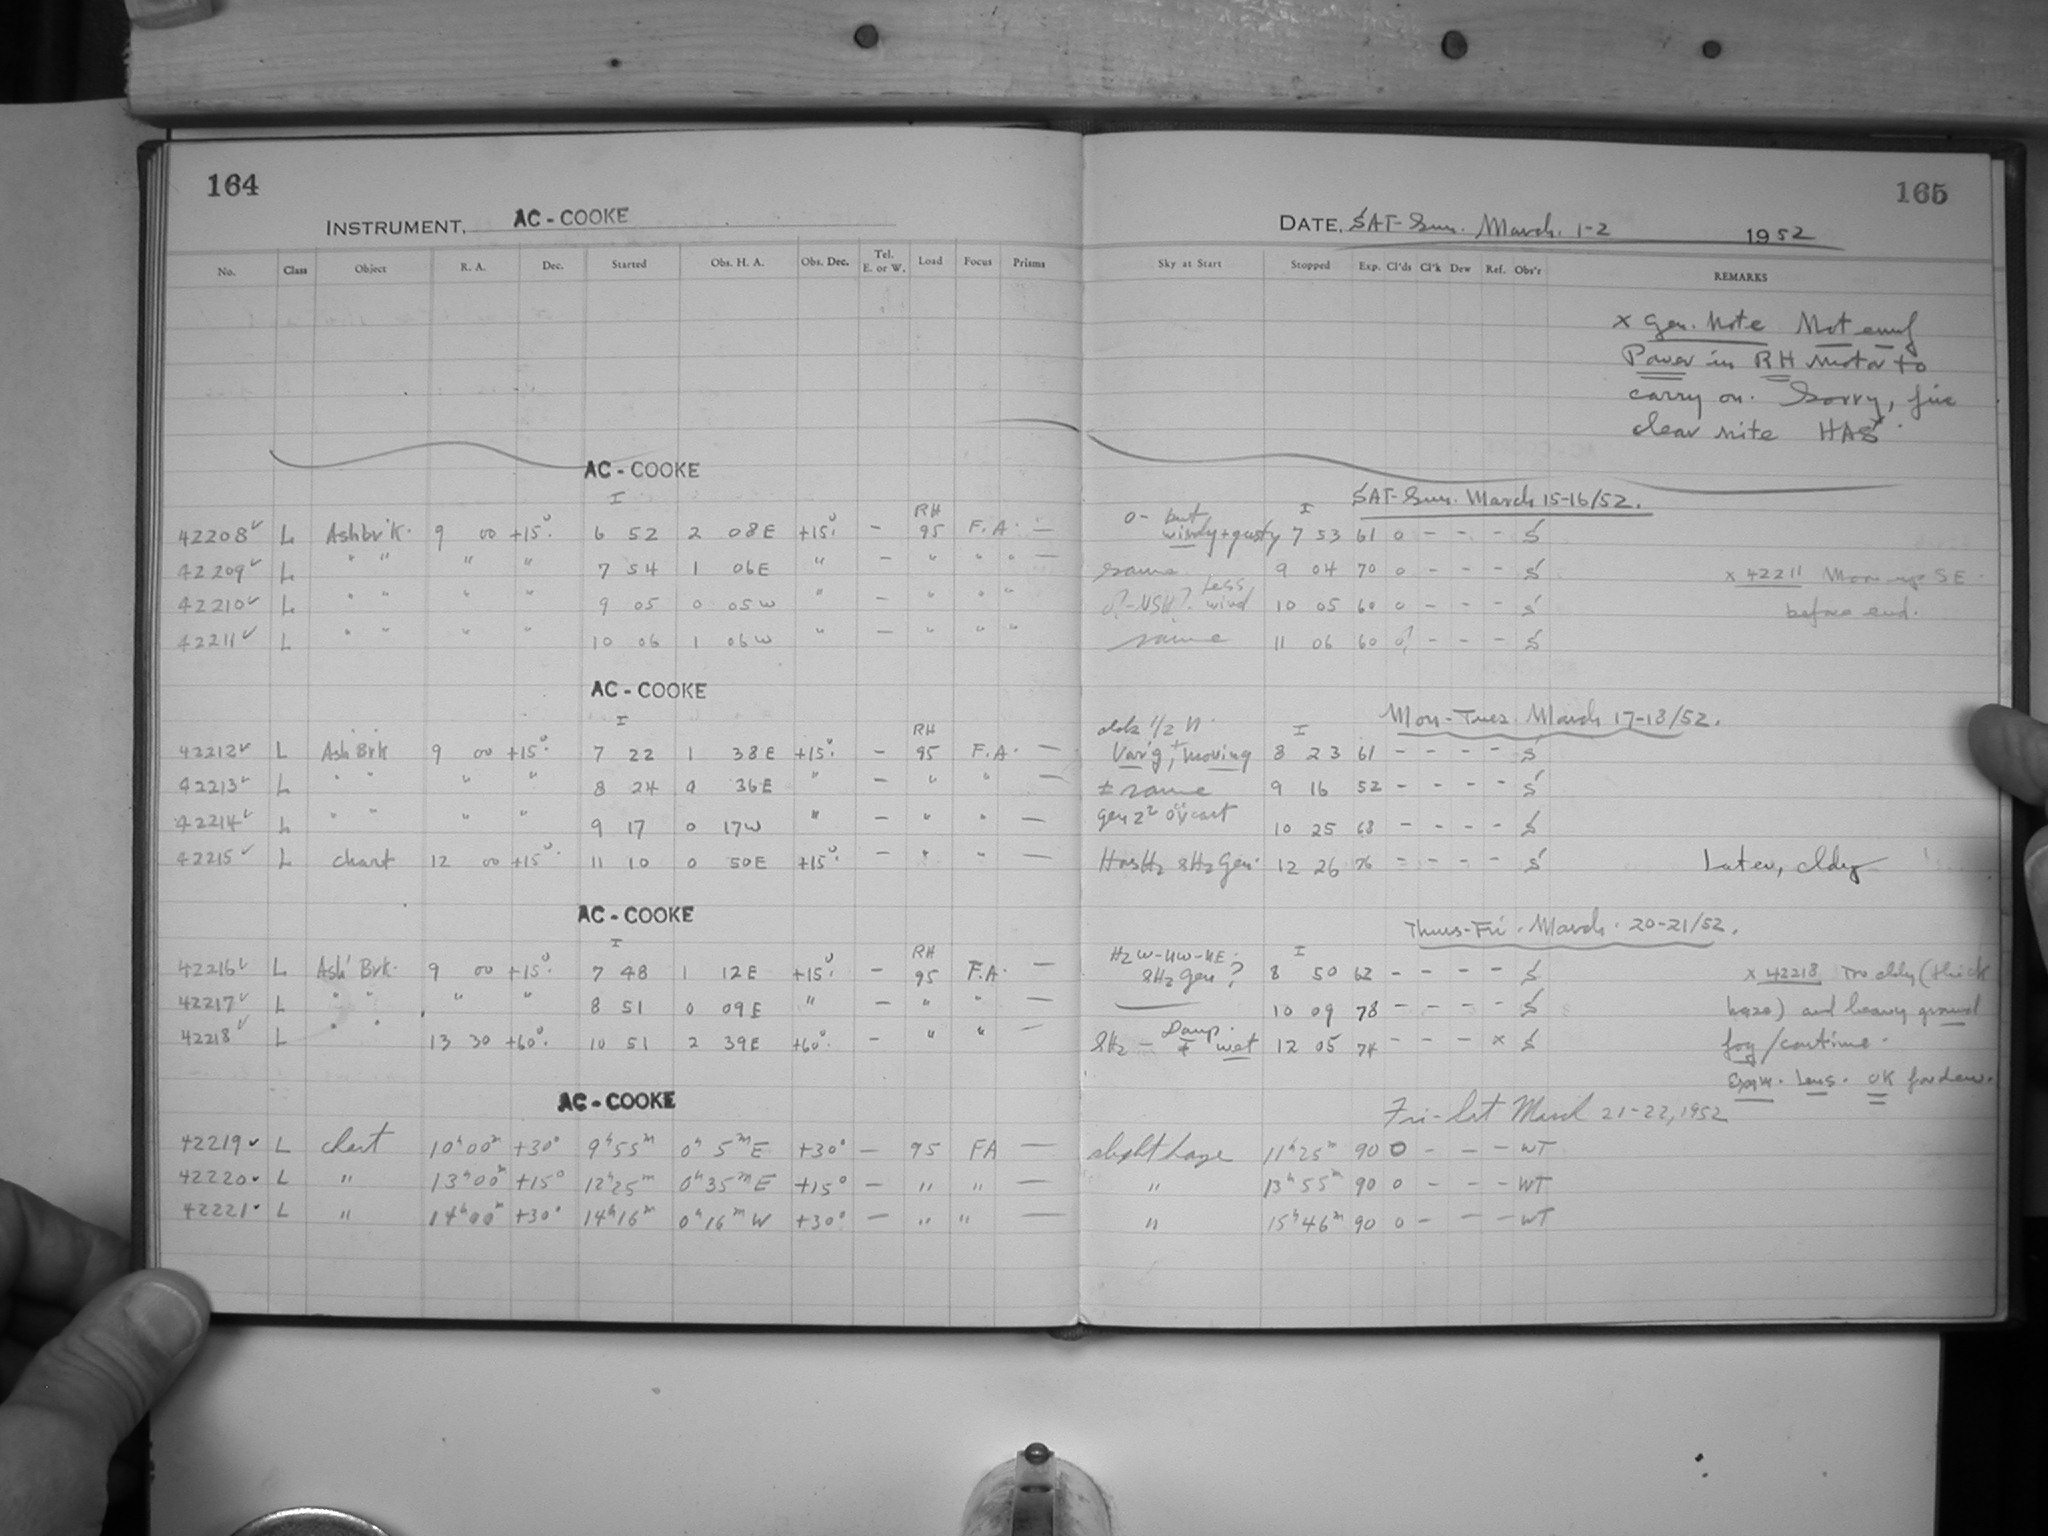 164
INSTRUMENT, AC - COOKE
No. Class Object R. A. Dec. Started Obs. H. A. Obs. Dec. Tel. E. or W. Load Focus Prisms
AC - COOKE
I RH
42208 ✓ L Ashbrk. 9 00 +15° 6 52 2 08E +15° - 95 F.A. -
42209 ✓ L " " " " 7 54 1 06E " - " " " -
42210 ✓ L " " " " 9 05 0 05W " - " " "
42211 ✓ L " " " " 10 06 1 06W " - " " "
AC - COOKE
I RH
42212 ✓ L Ash Brk 9 00 +15° 7 22 1 38E +15° - 95 F.A. -
42213 ✓ L " " " " 8 24 0 36E " - " " -
42214 ✓ L " " " " 9 17 0 17W " - " " -
42215 ✓ L chart 12 00 +15° 11 10 0 50E +15° - " " -
AC - COOKE
I RH
42216 ✓ L Ash' Brk. 9 00 +15° 7 48 1 12E +15° - 95 F.A. -
42217 ✓ L " " " " 8 51 0 09E " - " " -
42218 ✓ L " " 13 30 +60° 10 51 2 39E +60° - " " -
AC - COOKE
42219 ✓ L chart 10ʰ00ᵐ +30° 9ʰ55ᵐ 0ʰ 5ᵐE +30° - 95 FA -
42220 ✓ L " 13ʰ00ᵐ +15° 12ʰ25ᵐ 0ʰ35ᵐE +15° - " " -
42221 ✓ L " 14ʰ00ᵐ +30° 14ʰ16ᵐ 0ʰ16ᵐW +30° - " " -
165
DATE, SAT-Sun. March. 1-2 1952
Sky at Start Stopped Exp. Cl'ds Cl'k Dew Ref. Obs'r REMARKS
x Gen. Note Not enuf
Power in RH motor to
carry on. Sorry, fine
clear nite HAS.
SAT-Sun. March 15-16/52.
0- but I
windy + gusty 7 53 61 0 - - - S
same 9 04 70 0 - - - S x 42211 Moon up SE
Less wind 10 05 60 0 - - - S before end.
same 11 06 60 0? - - - S
Mon-Tues March 17-18/52.
1/2 N. I
Var'g, + moving 8 23 61 - - - - S
± same 9 16 52 - - - - S
gen 10 25 68 - - - - S
HZ Gen. 12 26 76 - - - - S Later, cldy
Thurs-Fri. March. 20-21/52.
HZ W-NW-NE. I
SHZ gen? 8 50 62 - - - - S x 42218 Too cldy (thick
10 09 78 - - - - S haze) and heavy ground
SHZ - Damp. ± wet 12 05 74 - - - x S fog/continue.
Exam. Lens. OK for dew.
Fri-Sat March 21-22, 1952
slight haze 11ʰ25ᵐ 90 0 - - - WT
" 13ʰ55ᵐ 90 0 - - - WT
" 15ʰ46ᵐ 90 0 - - - WT